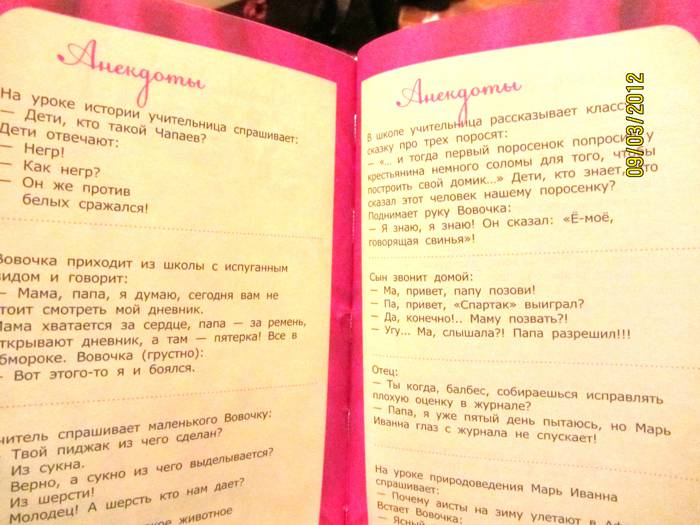 Анекдоты
На уроке истории учительница спрашивает:
— Дети, кто такой Чапаев?
Дети отвечают:
— Негр!
— Как негр?
— Он же против
белых сражался!
Вовочка приходит из школы с испуганным
видом и говорит:
— Мама, папа, я думаю, сегодня вам не
стоит смотреть мой дневник.
Мама хватается за сердце, папа — за ремень,
открывают дневник, а там — пятерка! Все в
обмороке. Вовочка (грустно):
— Вот этого-то я и боялся.
читель спрашивает маленького Вовочку:
Твой пиджак из чего сделан?
Из сукна.
Верно, а сукно из чего выделывается?
Из шерсти!
Молодец! А шерсть кто нам дает?
животное
Анекдоты
В школе учительница рассказывает классу
сказку про трех поросят:
— «... и тогда первый поросенок попросил у
крестьянина немного соломы для того, чтобы
построить свой домик...» Дети, кто знает, что
сказал этот человек нашему поросенку?
Поднимает руку Вовочка:
— Я знаю, я знаю! Он сказал: «Ё-моё,
говорящая свинья»!
Сын звонит домой:
— Ма, привет, папу позови!
— Па, привет, «Спартак» выиграл?
— Да, конечно!.. Маму позвать?!
— Угу... Ма, слышала?! Папа разрешил!!!
Отец:
— Ты когда, балбес, собираешься исправлять
плохую оценку в журнале?
— Папа, я уже пятый день пытаюсь, но Марь
Иванна глаз с журнала не спускает!
На уроке природоведения Марь Иванна
спрашивает:
— Почему аисты на зиму улетают в
Встает Вовочка:
— Ясный
09/03/2012